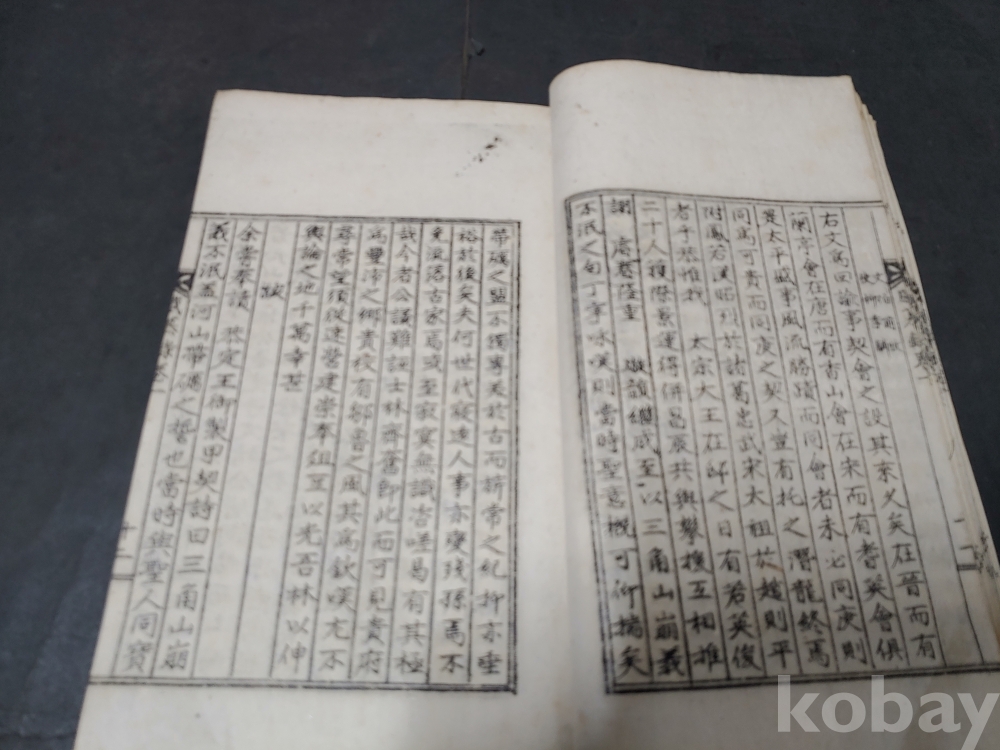 右文爲回諭事契會之設其來久矣在晉而有
蘭亭會在唐而有香山會在宋而有耆英會俱
是太平盛事風流勝蹟而同會者未必同庚則
同爲可貴而同庚之契又豈有托之潛龍終焉
附鳳若漢昭烈於諸葛忠武宋太祖於趙則平
者乎恭惟我 太宗大王在邸之日有若英俊
二十人獲際景運得倂昌辰共與攀援互相推
謝 度越隆重 誼繼成至以三角山崩義
不泯之句丁寧咏嘆則當時聖意槪可仰揣矣
帶礪之盟不獨專美於古而旂常之紀抑亦垂
裕於後矣夫何世代寢遠人事亦變殘孫焉不
免流落古家焉或至寂寞無識吉嗟曷有其極
哉今者公議難誣士林齊奮卽此而可見貴府
爲量沛之鄕貴校有鄒魯之風其爲欽嘆尤不
尋常望須從速營建崇奉俎豆以光吾林以伸
輿論之地千萬幸甚
跋
余嘗奉讀 恭定王御製甲契詩曰三角山崩
義不泯蓋河山帶礪之誓也當時與聖人同寶
十二
kobay